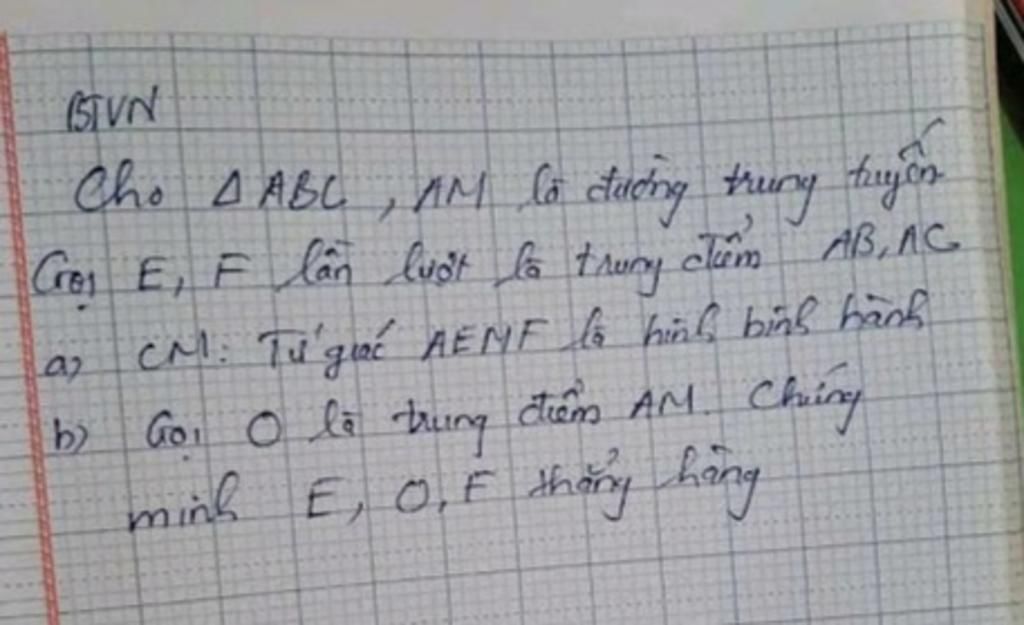 BTVN
Cho Δ ABC, AM là đường trung tuyến
Gọi E, F lần lượt là trung điểm AB, AC
a) CM: Tứ giác AEMF là hình bình hành
b) Gọi O là trung điểm AM. Chứng
minh E, O, F thẳng hàng